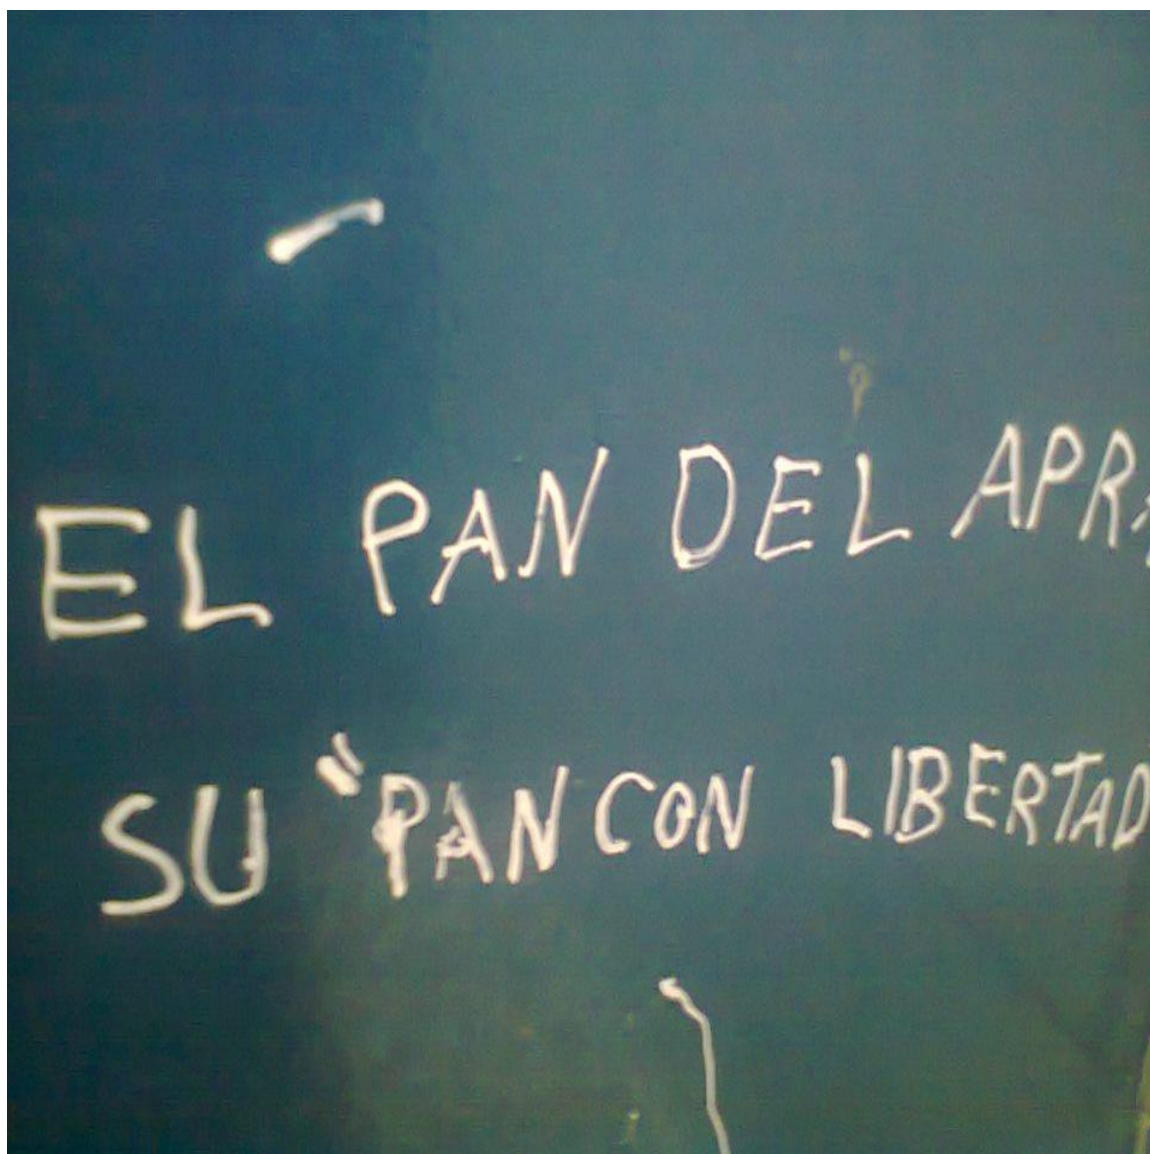 EL PAN DEL APRA
SU "PAN CON LIBERTAD